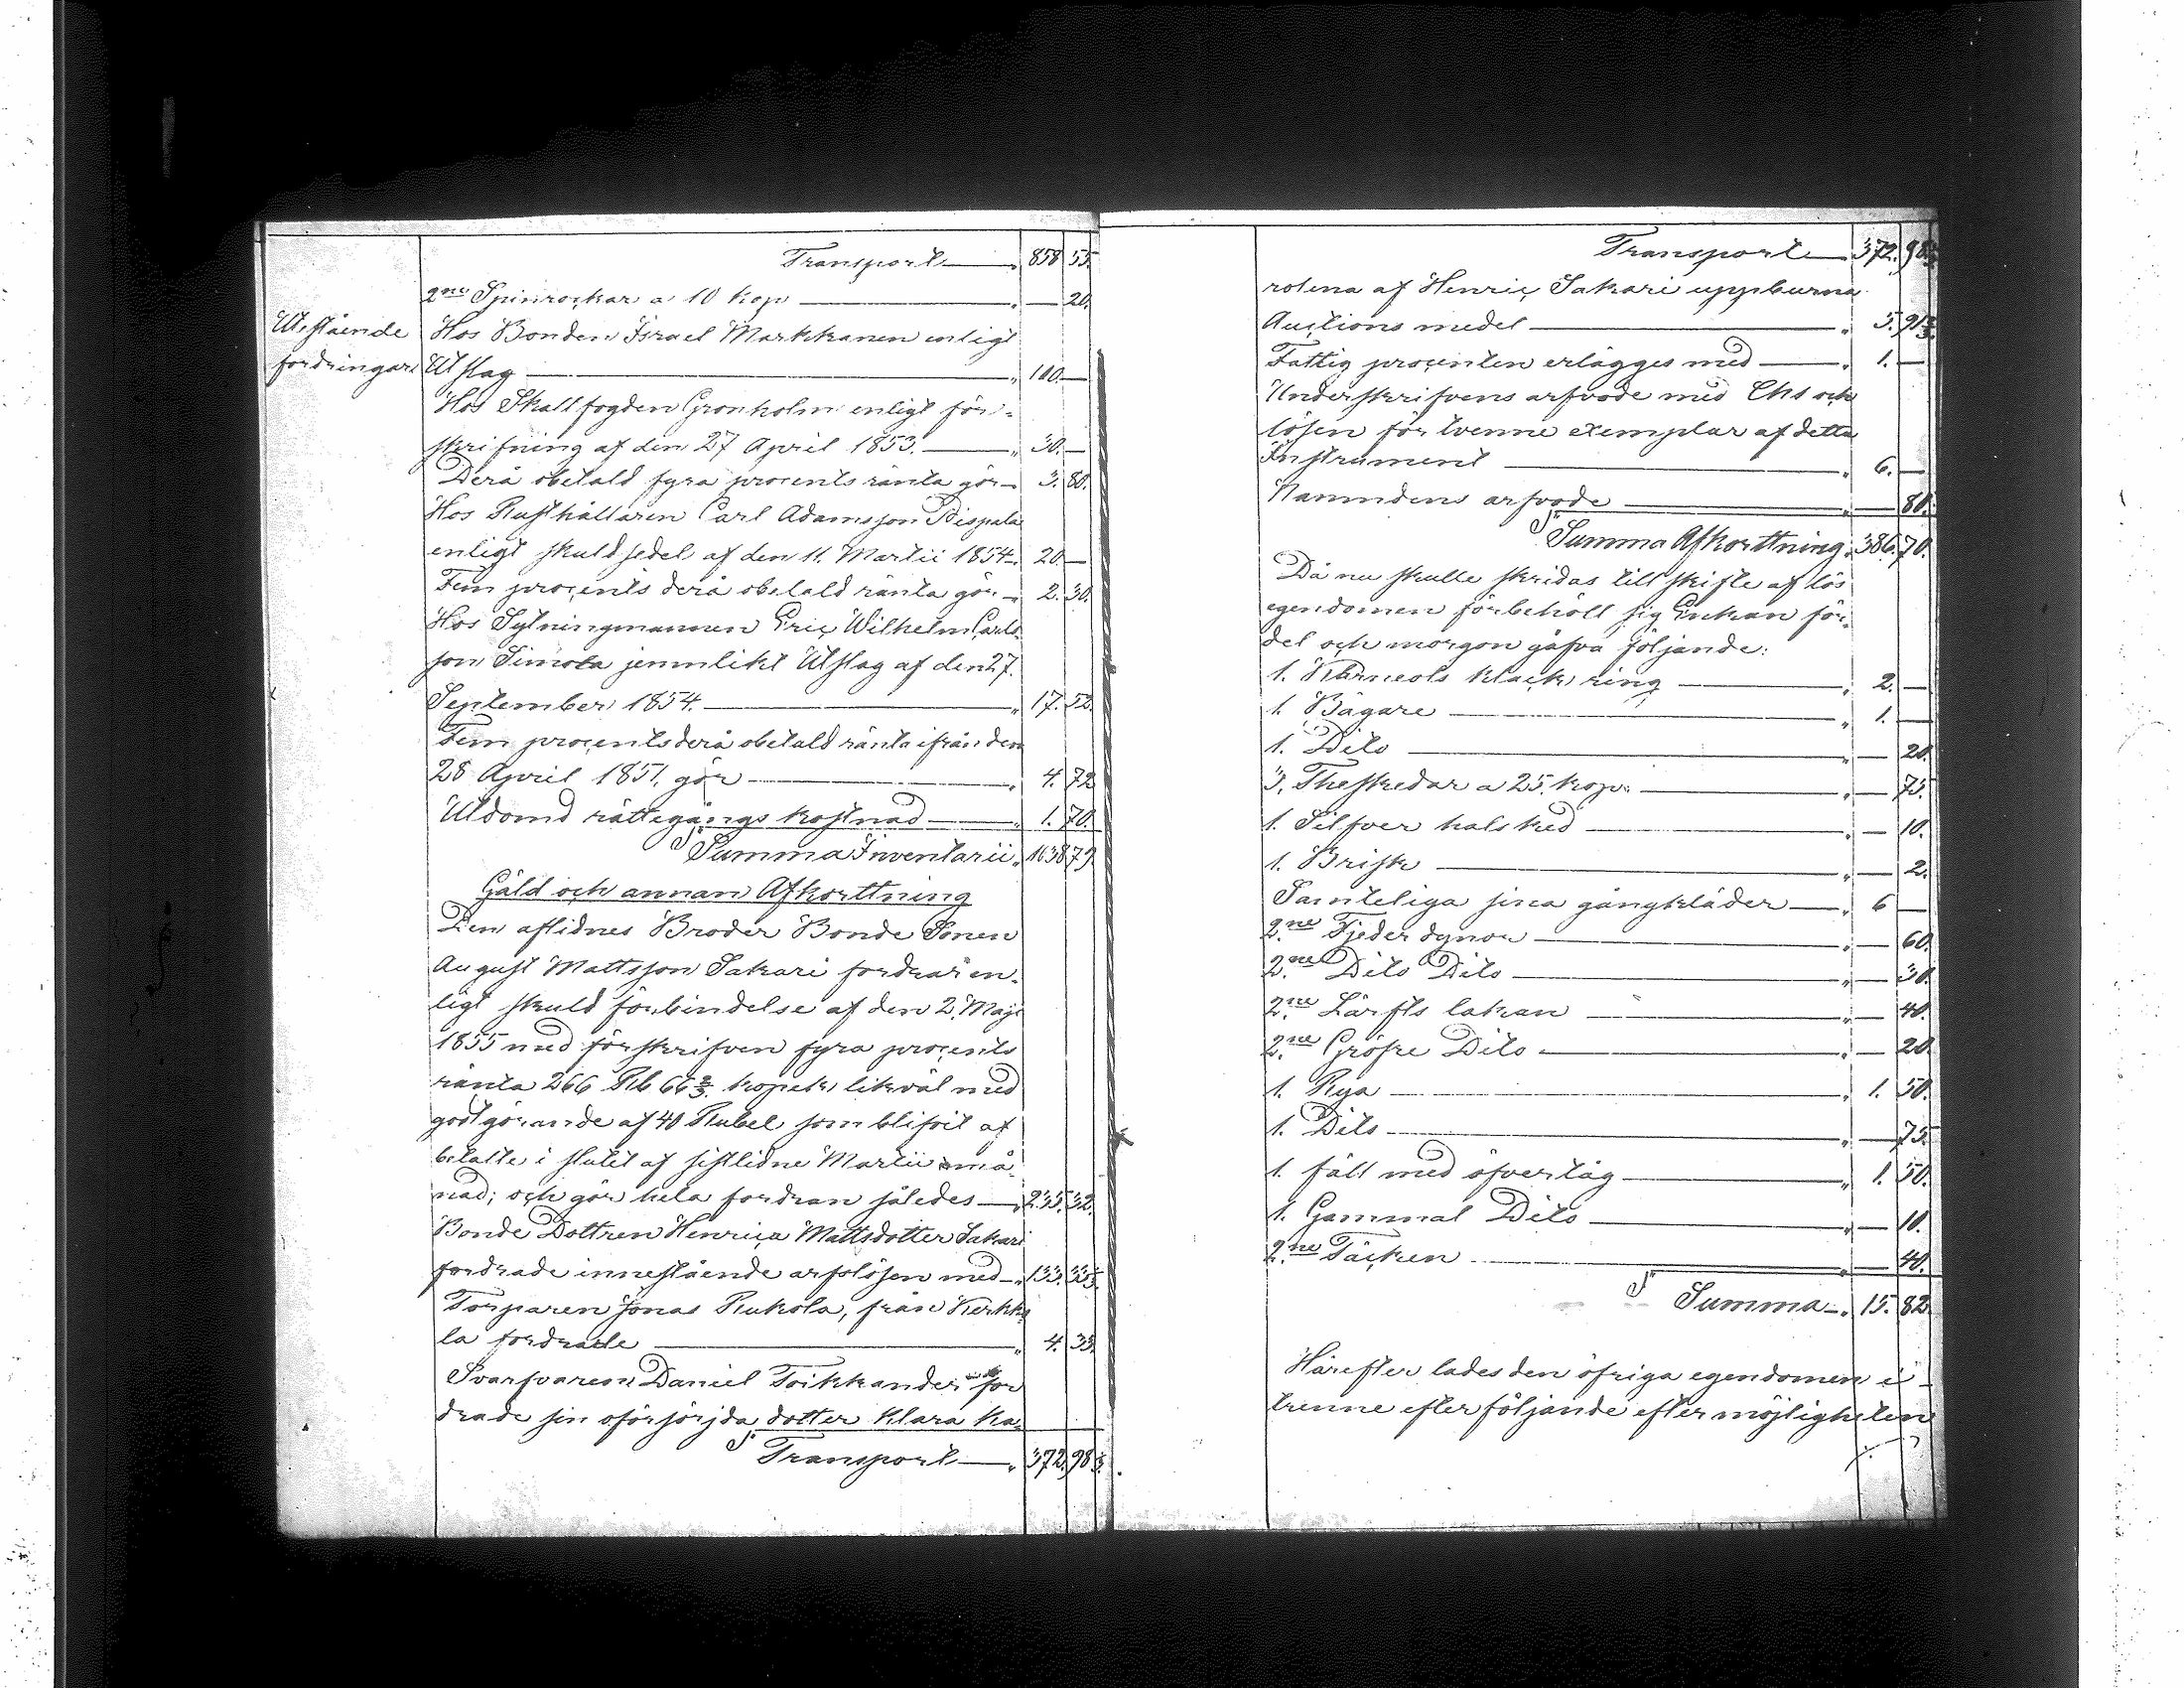 Transport — " 858 55.
2ne Spinrockar a 10 kop — " — 20.
Utestående Hos Bonden Israel Markkanen enligt
fordringar. Utslag — " 100. —
Hos Skallfogden Grönholm enligt för-
skrifning af den 27 April 1853. — " 30. —
Derå obetald fyra procents ränta gör — 3. 80.
Hos Rusthållaren Carl Adamsson Bispala
enligt skuldsedel af den 11. Martii 1854. 20. —
Fem procents derå obetald ränta gör — 2. 30.
Hos Sytningmannen Eric Wilhelm Carls-
son Simola jemnlikt Utslag af den 27.
September 1854. — " 17. 52.
Fem procents derå obetald ränta ifrån den
28 April 1851. gör — " 4. 72
Utdömd rättegångs kostnad — " 1. 70.
Sr Summa Inventarii " 1038 79.
Gäld och annan Afkorttning
Den aflidnes Broder Bonde Sonen
August Mattsson Sakari fordrar en-
ligt skuld förbindelse af den 2. Maji
1855 med förskrifven fyra procents
ränta 266 Rb 66 2/3. kopek, likväl med
godtgörande af 40 Rubel som blifvit af
betalte i slutet af sistlidne Martii må-
nad; och gör hela fordran således — " 235. 32.
Bonde Dottren Henrica Mattsdotter Sakari
fordrade innestående arfslösen med — " 133. 33 1/3.
Torparen Jonas Rukola, från Kerkko
la fordrade — " 4. 33.
Svarfvaren Daniel Toikkander for
drade sin oförsörjda dotter Klara Ka-
Sr Transport — " 372. 98 1/3.
Transport — " 372. 98 1/3
rolina af Henric Sakari uppburna
Auctions medel — " 5. 91 2/3.
Fattig procenten erlägges med — " 1. —
Underskrifvens arfvode med Chs och
lösen för tvenne exemplar af detta
Instrument — " 6. —
Nämndens arfvode — " — 80.
Sr Summa Afkorttning " 386. 70.
Då nu skulle skridas till skifte af lös
egendomen förbehöll sig Enkan för-
del och morgon gåfva följande:
1. Karneols klack ring — " 2. —
1. Bägare — " 1. —
1. Dito — " — 20.
3. Theskedar a 25. kop. — " — 75.
1. Silfver halsked — " — 10.
1. Brisk — " — 2.
Samteliga sina gångkläder — " 6 —
2.ne Fjeder dynor — " — 60.
2.ne Dito Dito — " — 30.
2.ne Lärfts lakan " — 40.
2.ne Gröfre Dito — " — 20.
1. Rya — " 1. 50.
1. Dito — " — 75.
1. fäll med öfvertåg — " 1. 50.
1. Gammal Dito — " — 10.
2.ne Täcken — " — 40.
Sr Summa — " 15. 82.
Härefter lades den öfriga egendomen i
trenne efterföljande efter möjligheten